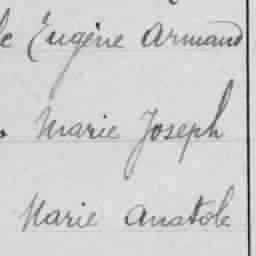 Eugène Armand
Marie Joseph
Marie Anatole